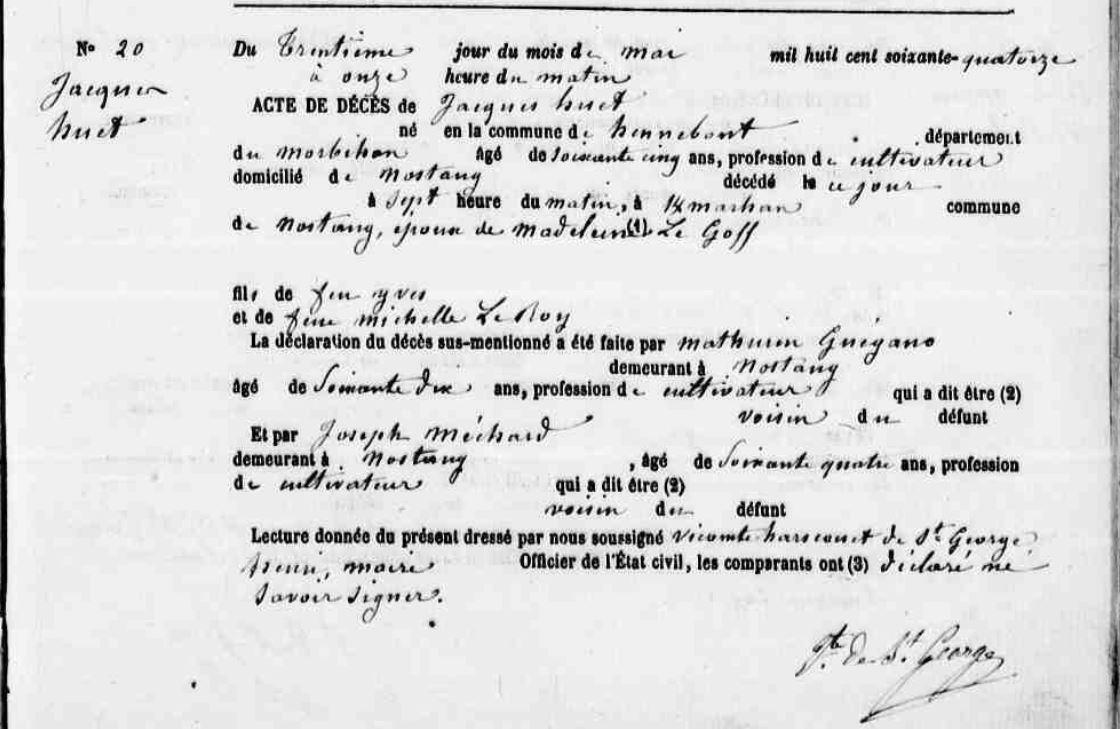 N° 20
Jacques
huet
Du Trentième jour du mois de mai mil huit cent soixante-quatorze
à onze heure du matin
ACTE DE DÉCÈS de Jacques huet
né en la commune de hennebont département
du morbihan âgé de soixante cinq ans, profession de cultivateur
domicilié de nostang décédé le ce jour
à sept heure du matin, à commune
de nostang, époux de madeleine (1) Le Goff
fils de feu yves
et de feue michelle Le Roy
La déclaration du décès sus-mentionné a été faite par mathurin Guégano
demeurant à nostang
âgé de soixante dix ans, profession de cultivateur qui a dit être (2)
voisin du défunt
Et par Joseph méchard
demeurant à nostang, âgé de soixante quatre ans, profession
de cultivateur qui a dit être (2)
voisin du défunt
Lecture donnée du présent dressé par nous soussigné vicomte harscouet de St George
henri, maire Officier de l'État civil, les comparants ont (3) déclaré ne
savoir signer.
Vte de St. George